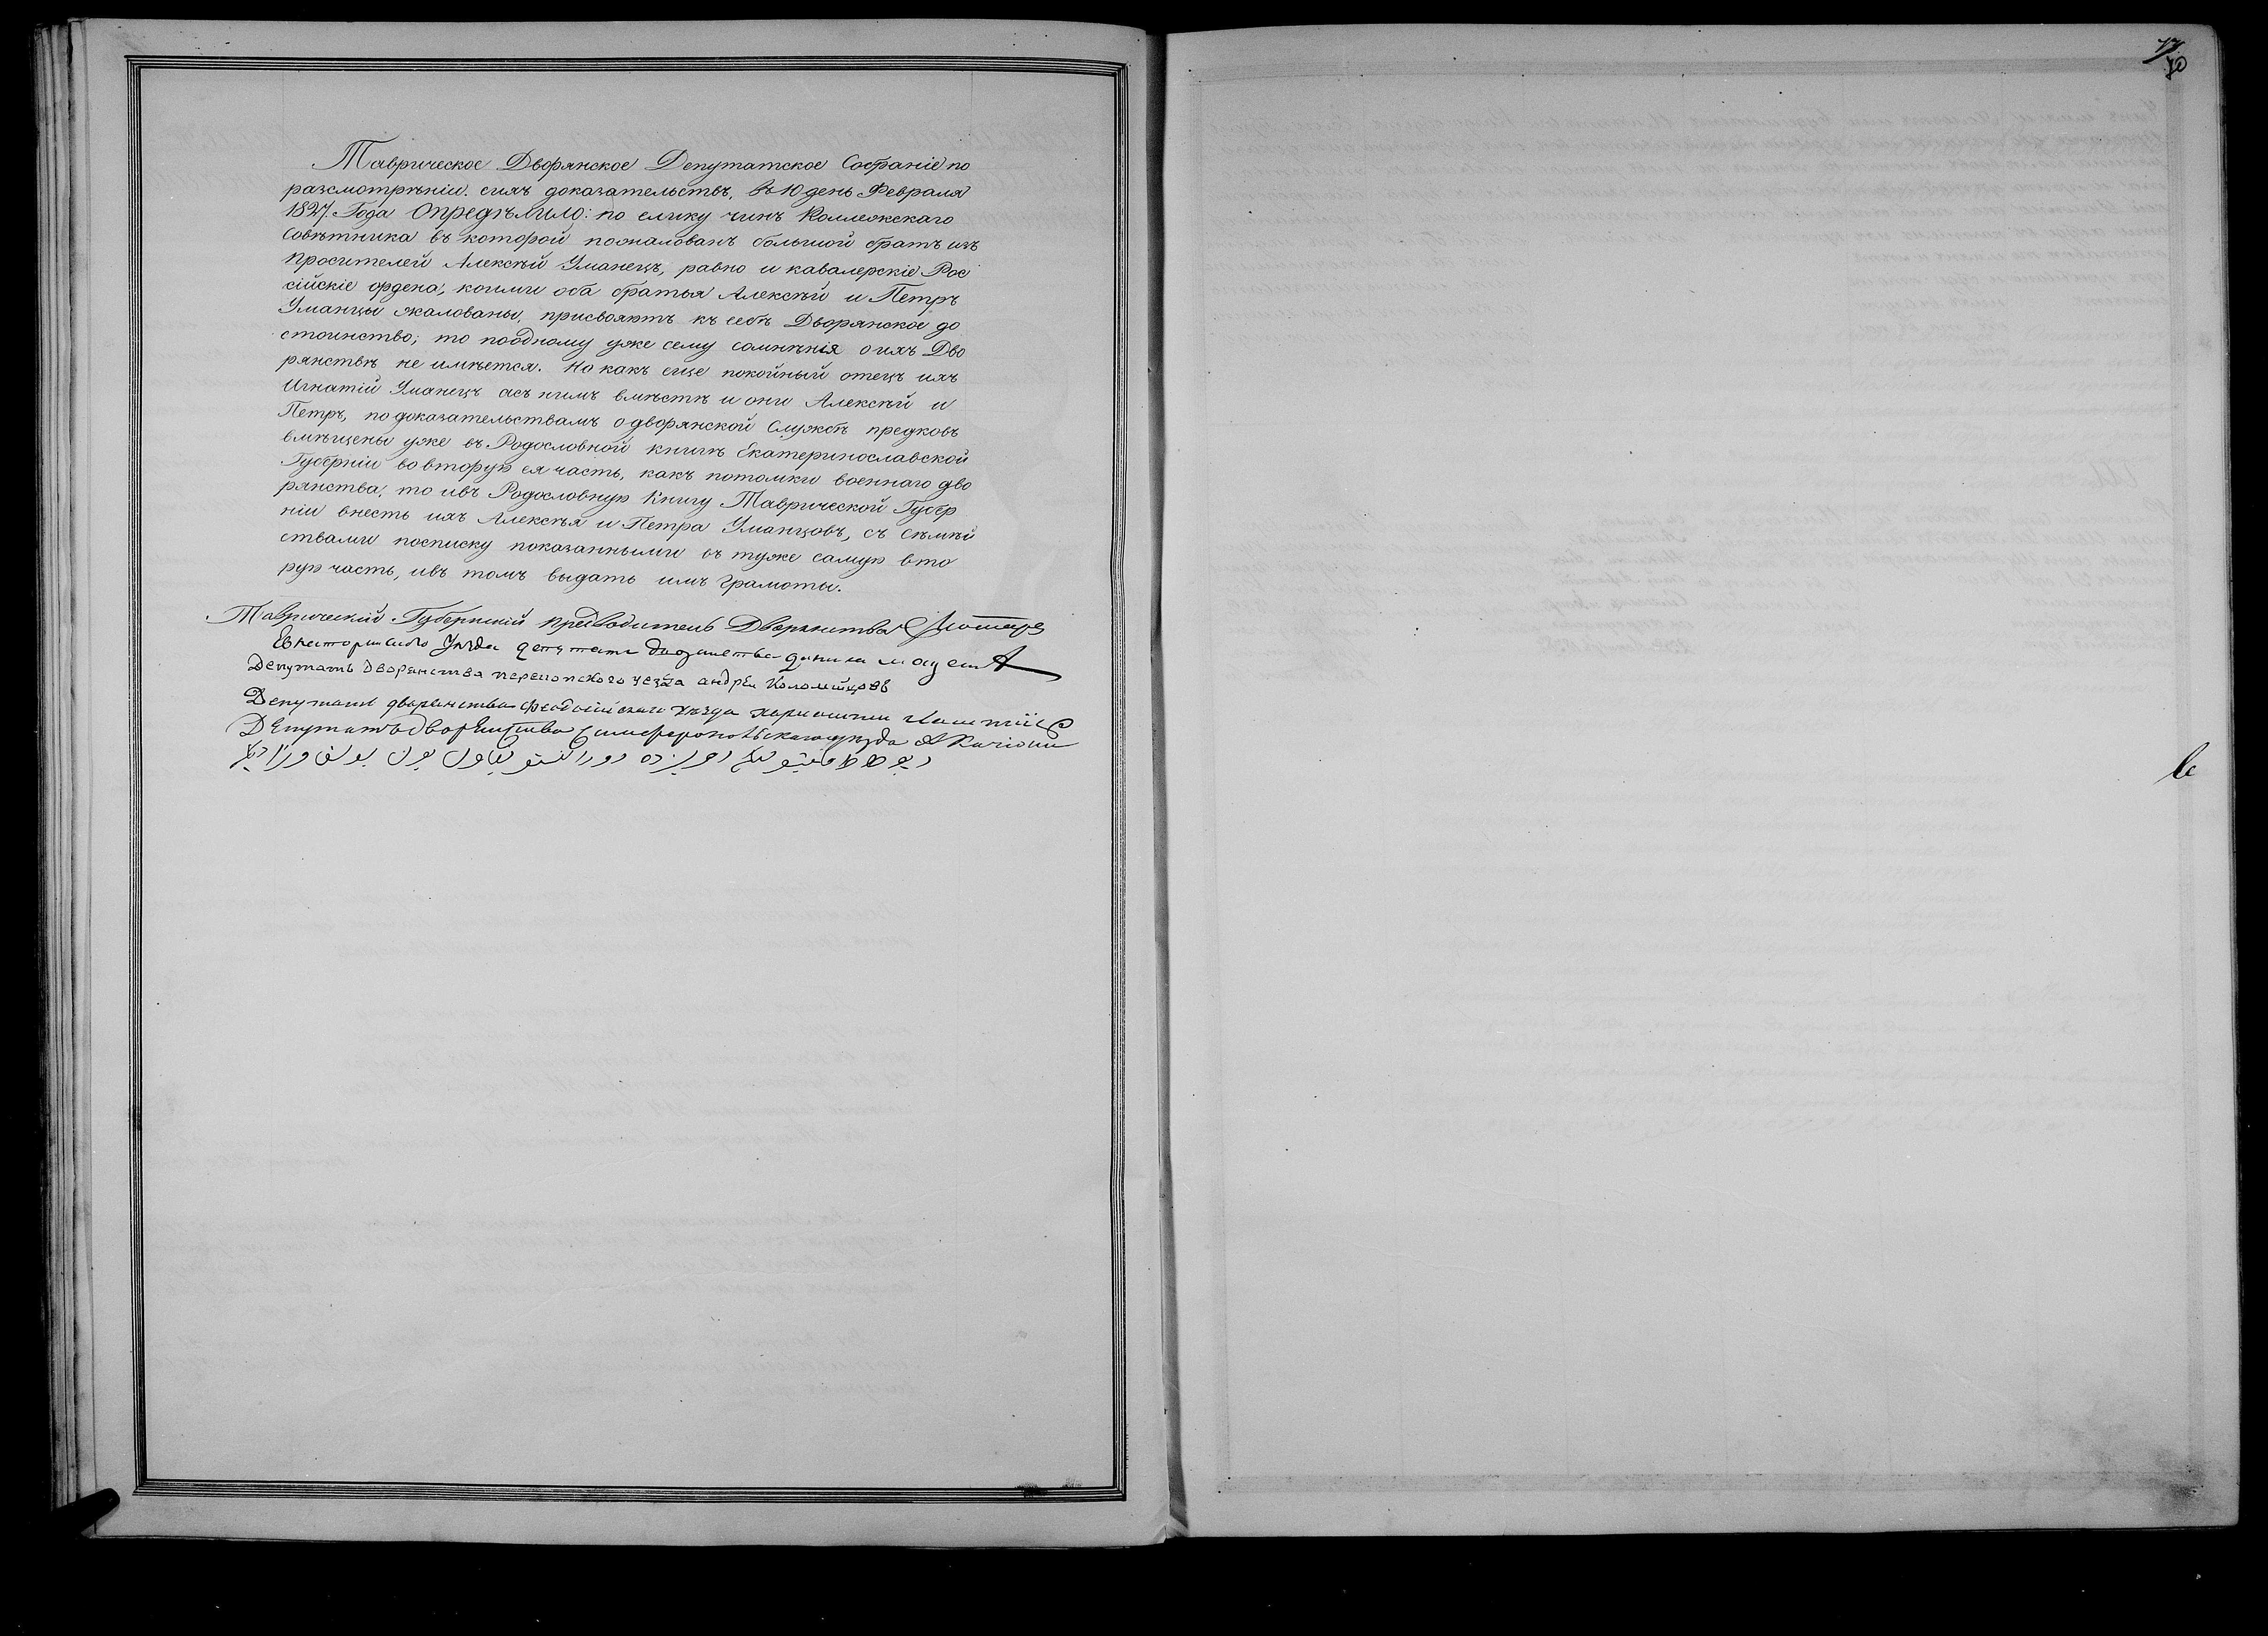 Таврическое Дворянское Депутатское Собраніе по
разсмотрѣніи сихъ доказательствъ, въ 10 день Февраля
1827. Года опредѣлило: по елику чинъ Коллежскаго
Совѣтника въ которой пожалованъ большой братъ изъ
просителей Алексѣй Уманецъ, равно и кавалерскіе Рос
сійскіе ордена, коими оба братья Алексѣй и Петръ
Уманцы жалованы, присвояютъ къ себѣ Дворянское до
стоинство; то поодному уже сему сомнѣнія о ихъ Дво
рянствѣ не имѣется. Но какъ еще покойный отецъ ихъ
Игнатій Уманецъ асъ нимъ вмѣстѣ и они Алексѣй и
Петръ, по доказательствамъ о дворянской Службѣ предковъ
вмѣщены уже въ Родословной книгѣ Екатеринославской
Губерніи во вторую ея часть, какъ потомки военнаго дво
рянства, то ивъ Родословную Книгу Таврической Губер
ніи внесть ихъ Алексѣя и Петра Уманцовъ, съ сѣмѣй
ствами посписку показанными въ туже самую вто
рую часть, ивъ томъ выдать имъ грамоты.
Таврический Губернский предводитель Дворянства
Уѣзда
Депутатъ дворянства перекопского уезда андрей Коломийцовъ
Депутатъ дворянства феодосийскаго уѣзда
Депутатъ дворянства Симферопольскаго уѣзда